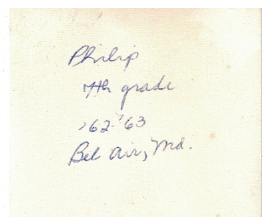 Philip
7th grade
'62-'63
Bel Air, Md.